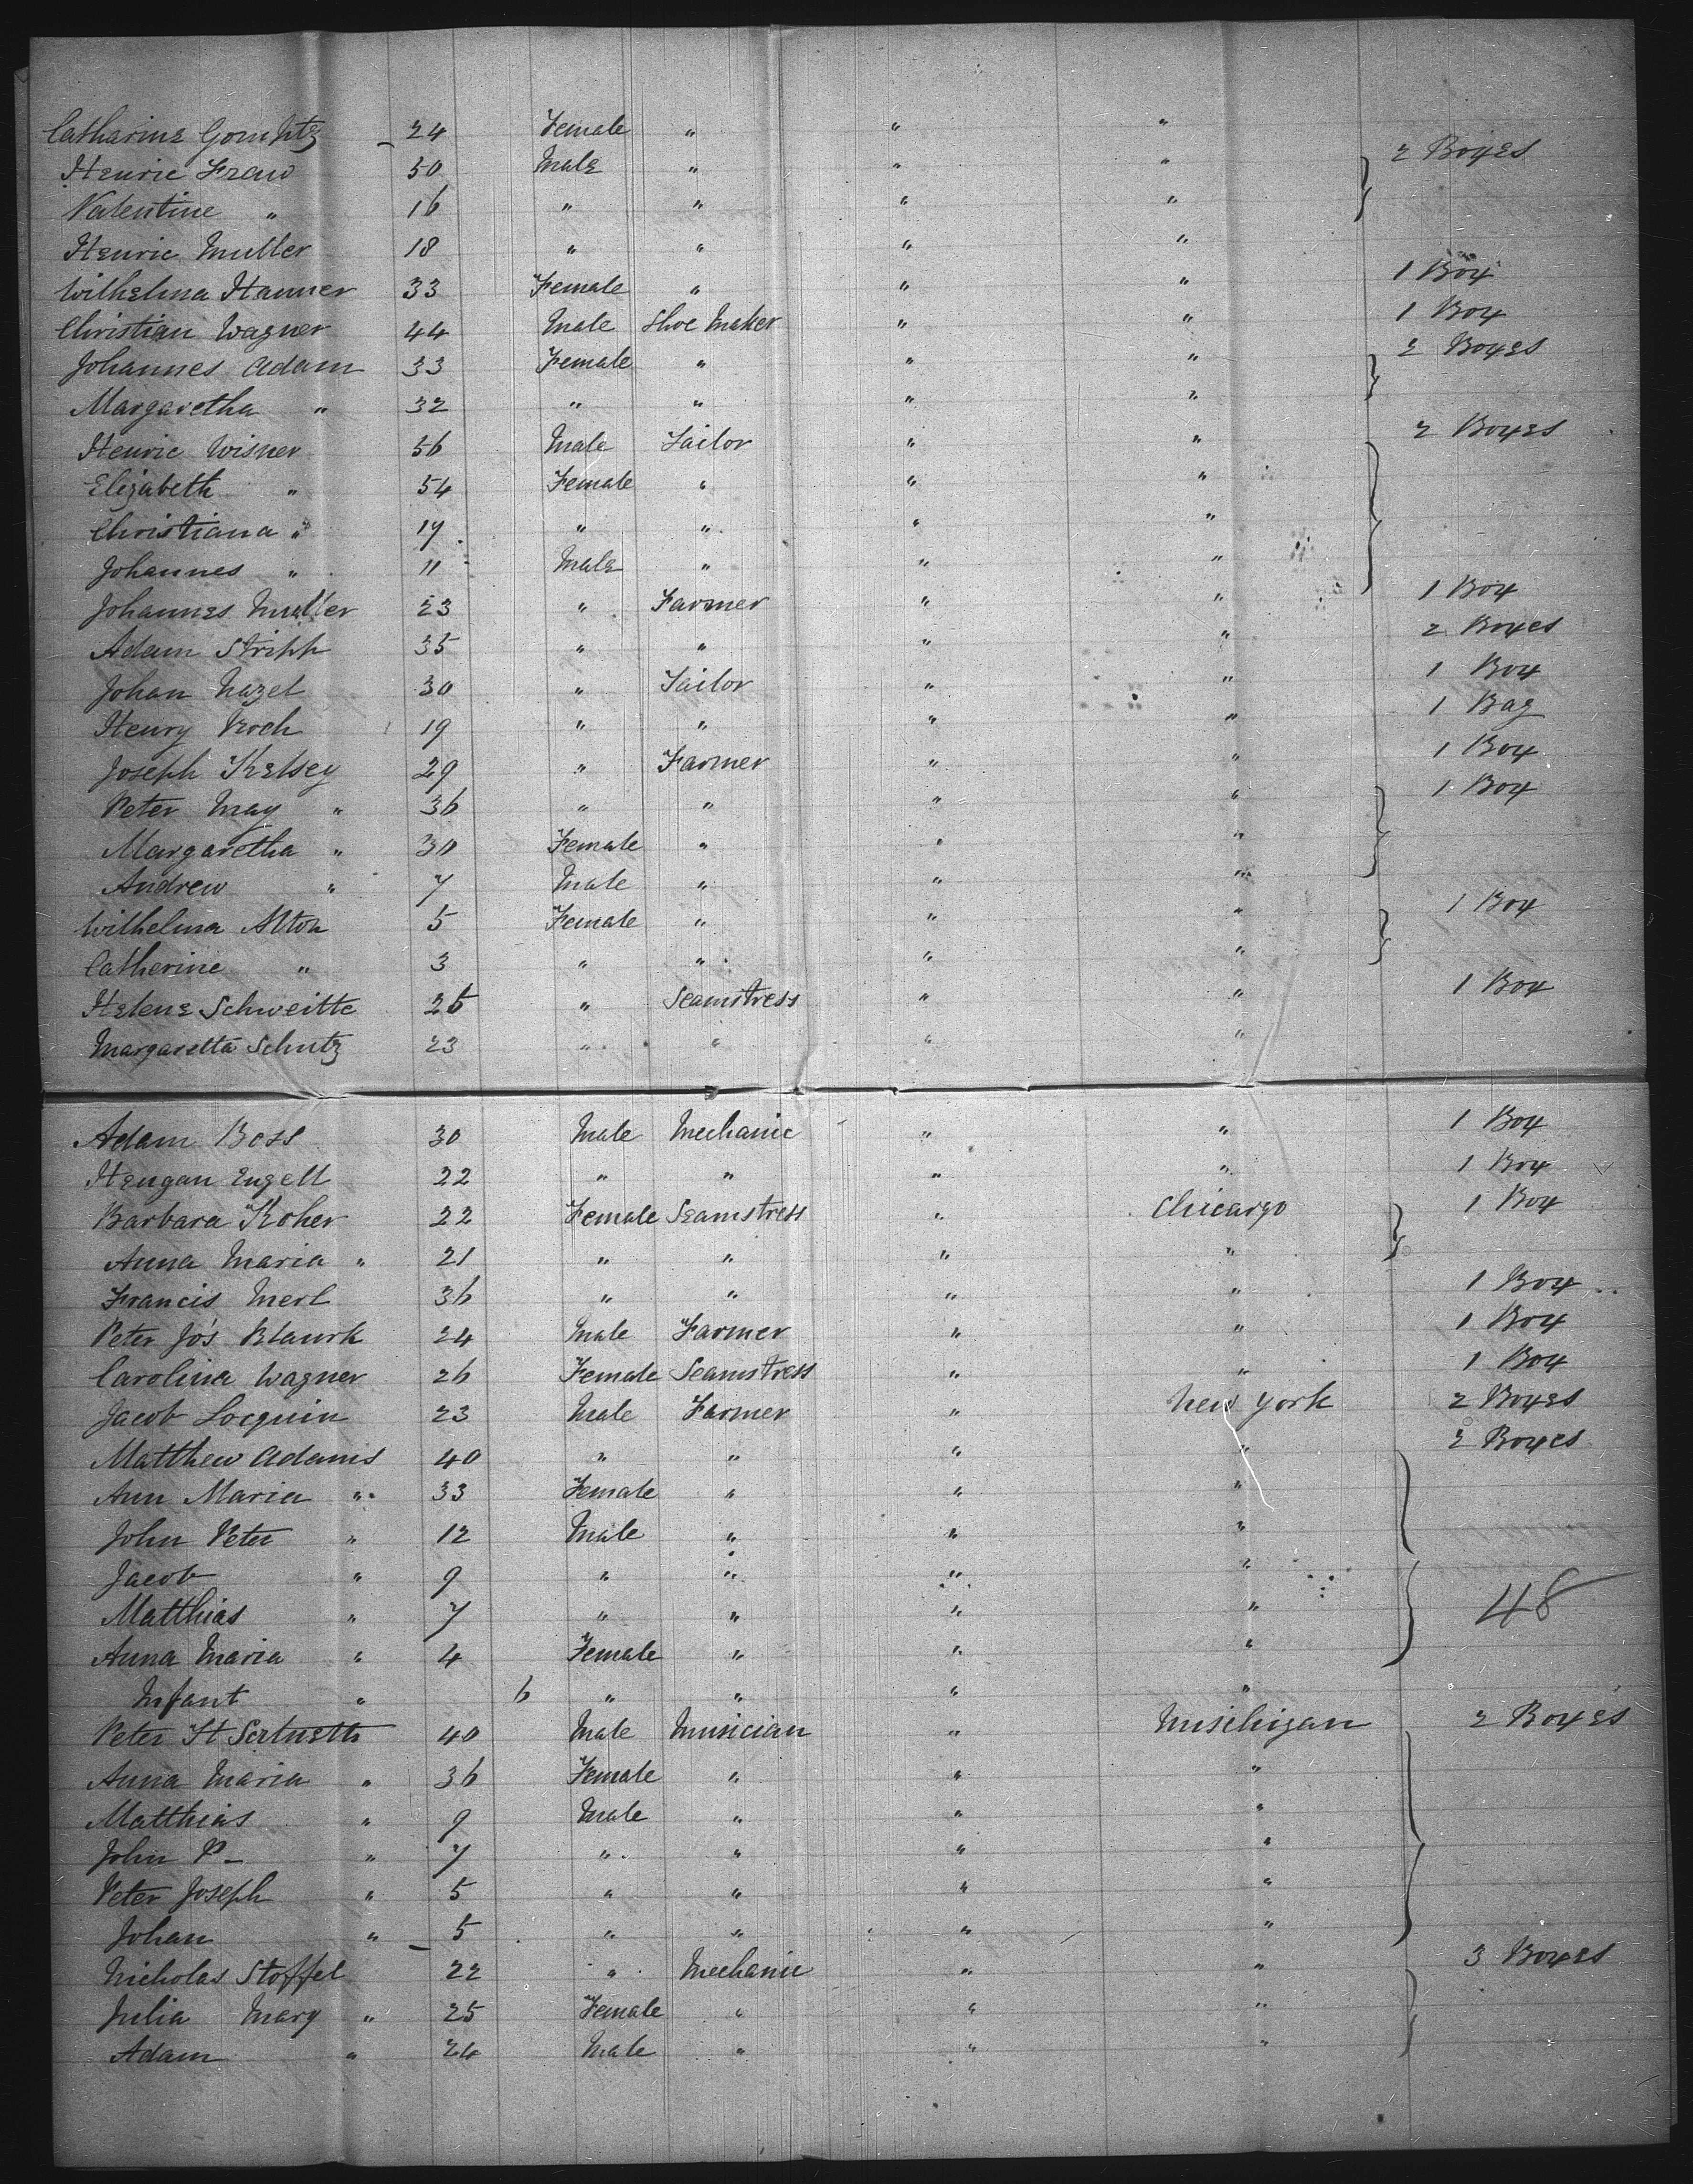 Catharine Gomptz 24 Female " " "
Henric Fraw 50 Male " " " 2 Boxes
Valentine " 16 " " " "
Henric Muller 18 " " " "
Wilhelma Hanner 33 Female " " " 1 Box
Christian Wagner 44 Male Shoe Maker " " 1 Box
Johannes Adam 33 Female " " " 2 Boxes
Margaretha " 32 " " " "
Henric Wisner 56 Male Tailor " " 2 Boxes
Elizabeth " 54 Female " " "
Christiana " 17 " " " "
Johannes " 11 Male " " "
Johannes Muller 23 " Farmer " " 1 Box
Adam Stripp 35 " " " " 2 Boxes
Johan Nazel 30 " Tailor " " 1 Box
Henry Koch 19 " " " " 1 Bag
Joseph Kelsey 29 " Farmer " " 1 Box
Peter May " 36 " " " " 1 Box
Margaretha " 30 Female " " "
Andrew " 7 Male " " "
Wilhelma Alton 5 Female " " " 1 Box
Catherine " 3 " " " "
Helene Schweitte 25 " Seamstress " " 1 Box
Margaretta Schutz 23 " " " "
Adam Boss 30 Male Mechanic " " 1 Box
Hengan Engell 22 " " " " 1 Box
Barbara Koher 22 Female Seamstress " Chicargo 1 Box
Anna Maria " 21 " " " "
Francis Merl 36 " " " " 1 Box
Peter Jo's Blaurk 24 Male Farmer " " 1 Box
Carolina Wagner 26 Female Seamstress " " 1 Box
Jacob Locquin 23 Male Farmer " New York 2 Boxes
Matthew Adams 40 " " " " 2 Boxes
Ann Maria " 33 Female " " "
John Peter " 12 Male " " "
Jacob " 9 " " " "
Matthias " 7 " " " " 48
Anna Maria " 4 Female " " "
Infant " 6 " " " "
Peter St 40 Male Musician " Mischigan 2 Boxes
Anna Maria " 36 Female " " "
Matthias " 9 Male " " "
John P- " 7 " " " "
Peter Joseph " 5 " " " "
Johan " 5 " " " "
Nicholas Stoffel 22 " Mechanic " " 3 Boxes
Julia Mary " 25 Female " " "
Adam " 24 Male " " "